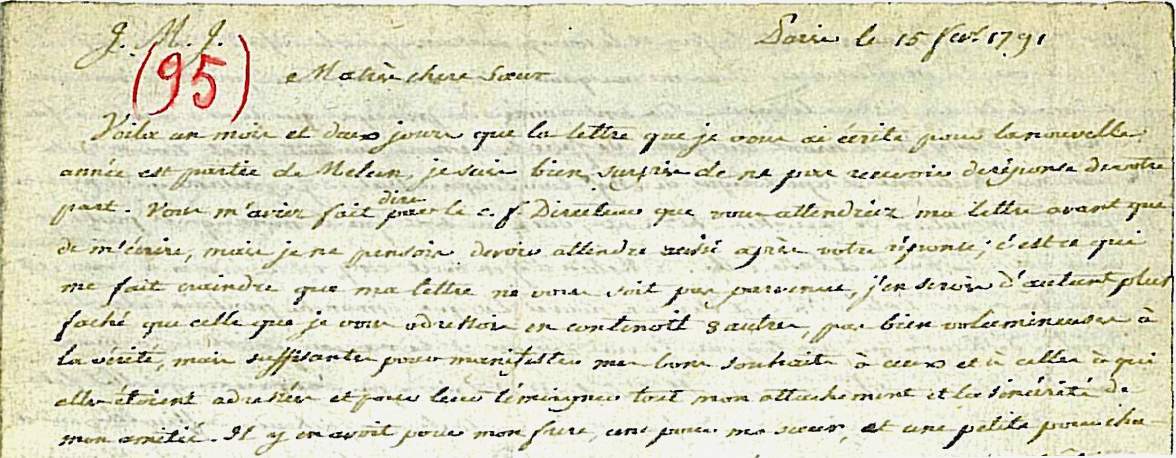 J. M. J. Paris le 15 fevr 1791
(95)
Ma très chere Sœur
Voila un mois et deux jours que la lettre que je vous ai écrite pour la nouvelle
année est partie de Melun, je suis bien surpris de ne pas recevoir de réponse de votre
part. Vous m'aviez fait dire par le c. f. Directeur que vous attendriez ma lettre avant que
de m'écrire, mais je ne pensois devoir attendre aussi après votre réponse; c'est ce qui
me fait craindre que ma lettre ne vous soit pas parvenue, j'en serois d'autant plus
faché que celle que je vous adressois en contenoit 8 autres, pas bien volumineuses à
la vérité, mais suffisantes pour manifester mes bons souhaits à ceux et à celles à qui
elles étoient adressées et pour leur témoigner tout mon attachement et la sincérité de
mon amitié. Il y en avoit pour mon frere, une pour ma sœur, et une petite pour cha-